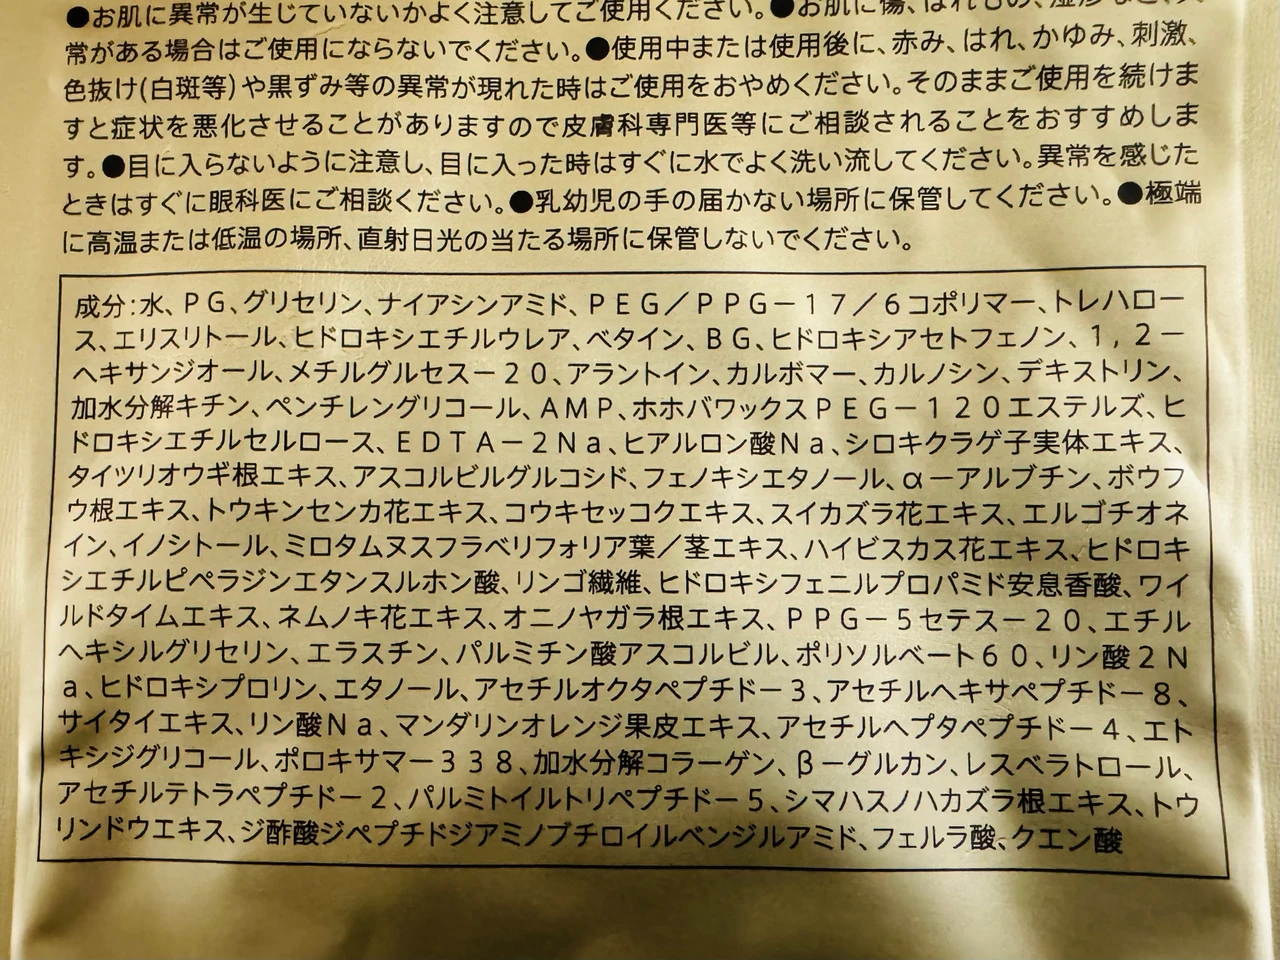 ●お肌に異常が生じていないかよく注意してご使用ください。●お肌に傷、はれもの、湿疹など、異
常がある場合はご使用にならないでください。●使用中または使用後に、赤み、はれ、かゆみ、刺激、
色抜け(白斑等)や黒ずみ等の異常が現れた時はご使用をおやめください。そのままご使用を続けま
すと症状を悪化させることがありますので皮膚科専門医等にご相談されることをおすすめしま
す。●目に入らないように注意し、目に入った時はすぐに水でよく洗い流してください。異常を感じた
ときはすぐに眼科医にご相談ください。●乳幼児の手の届かない場所に保管してください。●極端
に高温または低温の場所、直射日光の当たる場所に保管しないでください。
成分:水、PG、グリセリン、ナイアシンアミド、PEG/PPG-17/6コポリマー、トレハロー
ス、エリスリトール、ヒドロキシエチルウレア、ベタイン、BG、ヒドロキシアセトフェノン、1,2-
ヘキサンジオール、メチルグルセス-20、アラントイン、カルボマー、カルノシン、デキストリン、
加水分解キチン、ペンチレングリコール、AMP、ホホバワックスPEG-120エステルズ、ヒ
ドロキシエチルセルロース、EDTA-2Na、ヒアルロン酸Na、シロキクラゲ子実体エキス、
タイツリオウギ根エキス、アスコルビルグルコシド、フェノキシエタノール、α-アルブチン、ボウフ
ウ根エキス、トウキンセンカ花エキス、コウキセッコクエキス、スイカズラ花エキス、エルゴチオネ
イン、イノシトール、ミロタムヌスフラベリフォリア葉/茎エキス、ハイビスカス花エキス、ヒドロキ
シエチルピペラジンエタンスルホン酸、リンゴ繊維、ヒドロキシフェニルプロパミド安息香酸、ワイ
ルドタイムエキス、ネムノキ花エキス、オニノヤガラ根エキス、PPG-5セテス-20、エチル
ヘキシルグリセリン、エラスチン、パルミチン酸アスコルビル、ポリソルベート60、リン酸2N
a、ヒドロキシプロリン、エタノール、アセチルオクタペプチドー3、アセチルヘキサペプチドー8、
サイタイエキス、リン酸Na、マンダリンオレンジ果皮エキス、アセチルヘプタペプチドー4、エト
キシジグリコール、ポロキサマー338、加水分解コラーゲン、β-グルカン、レスベラトロール、
アセチルテトラペプチドー2、パルミトイルトリペプチドー5、シマハスノハカズラ根エキス、トウ
リンドウエキス、ジ酢酸ジペプチドジアミノブチロイルベンジルアミド、フェルラ酸、クエン酸